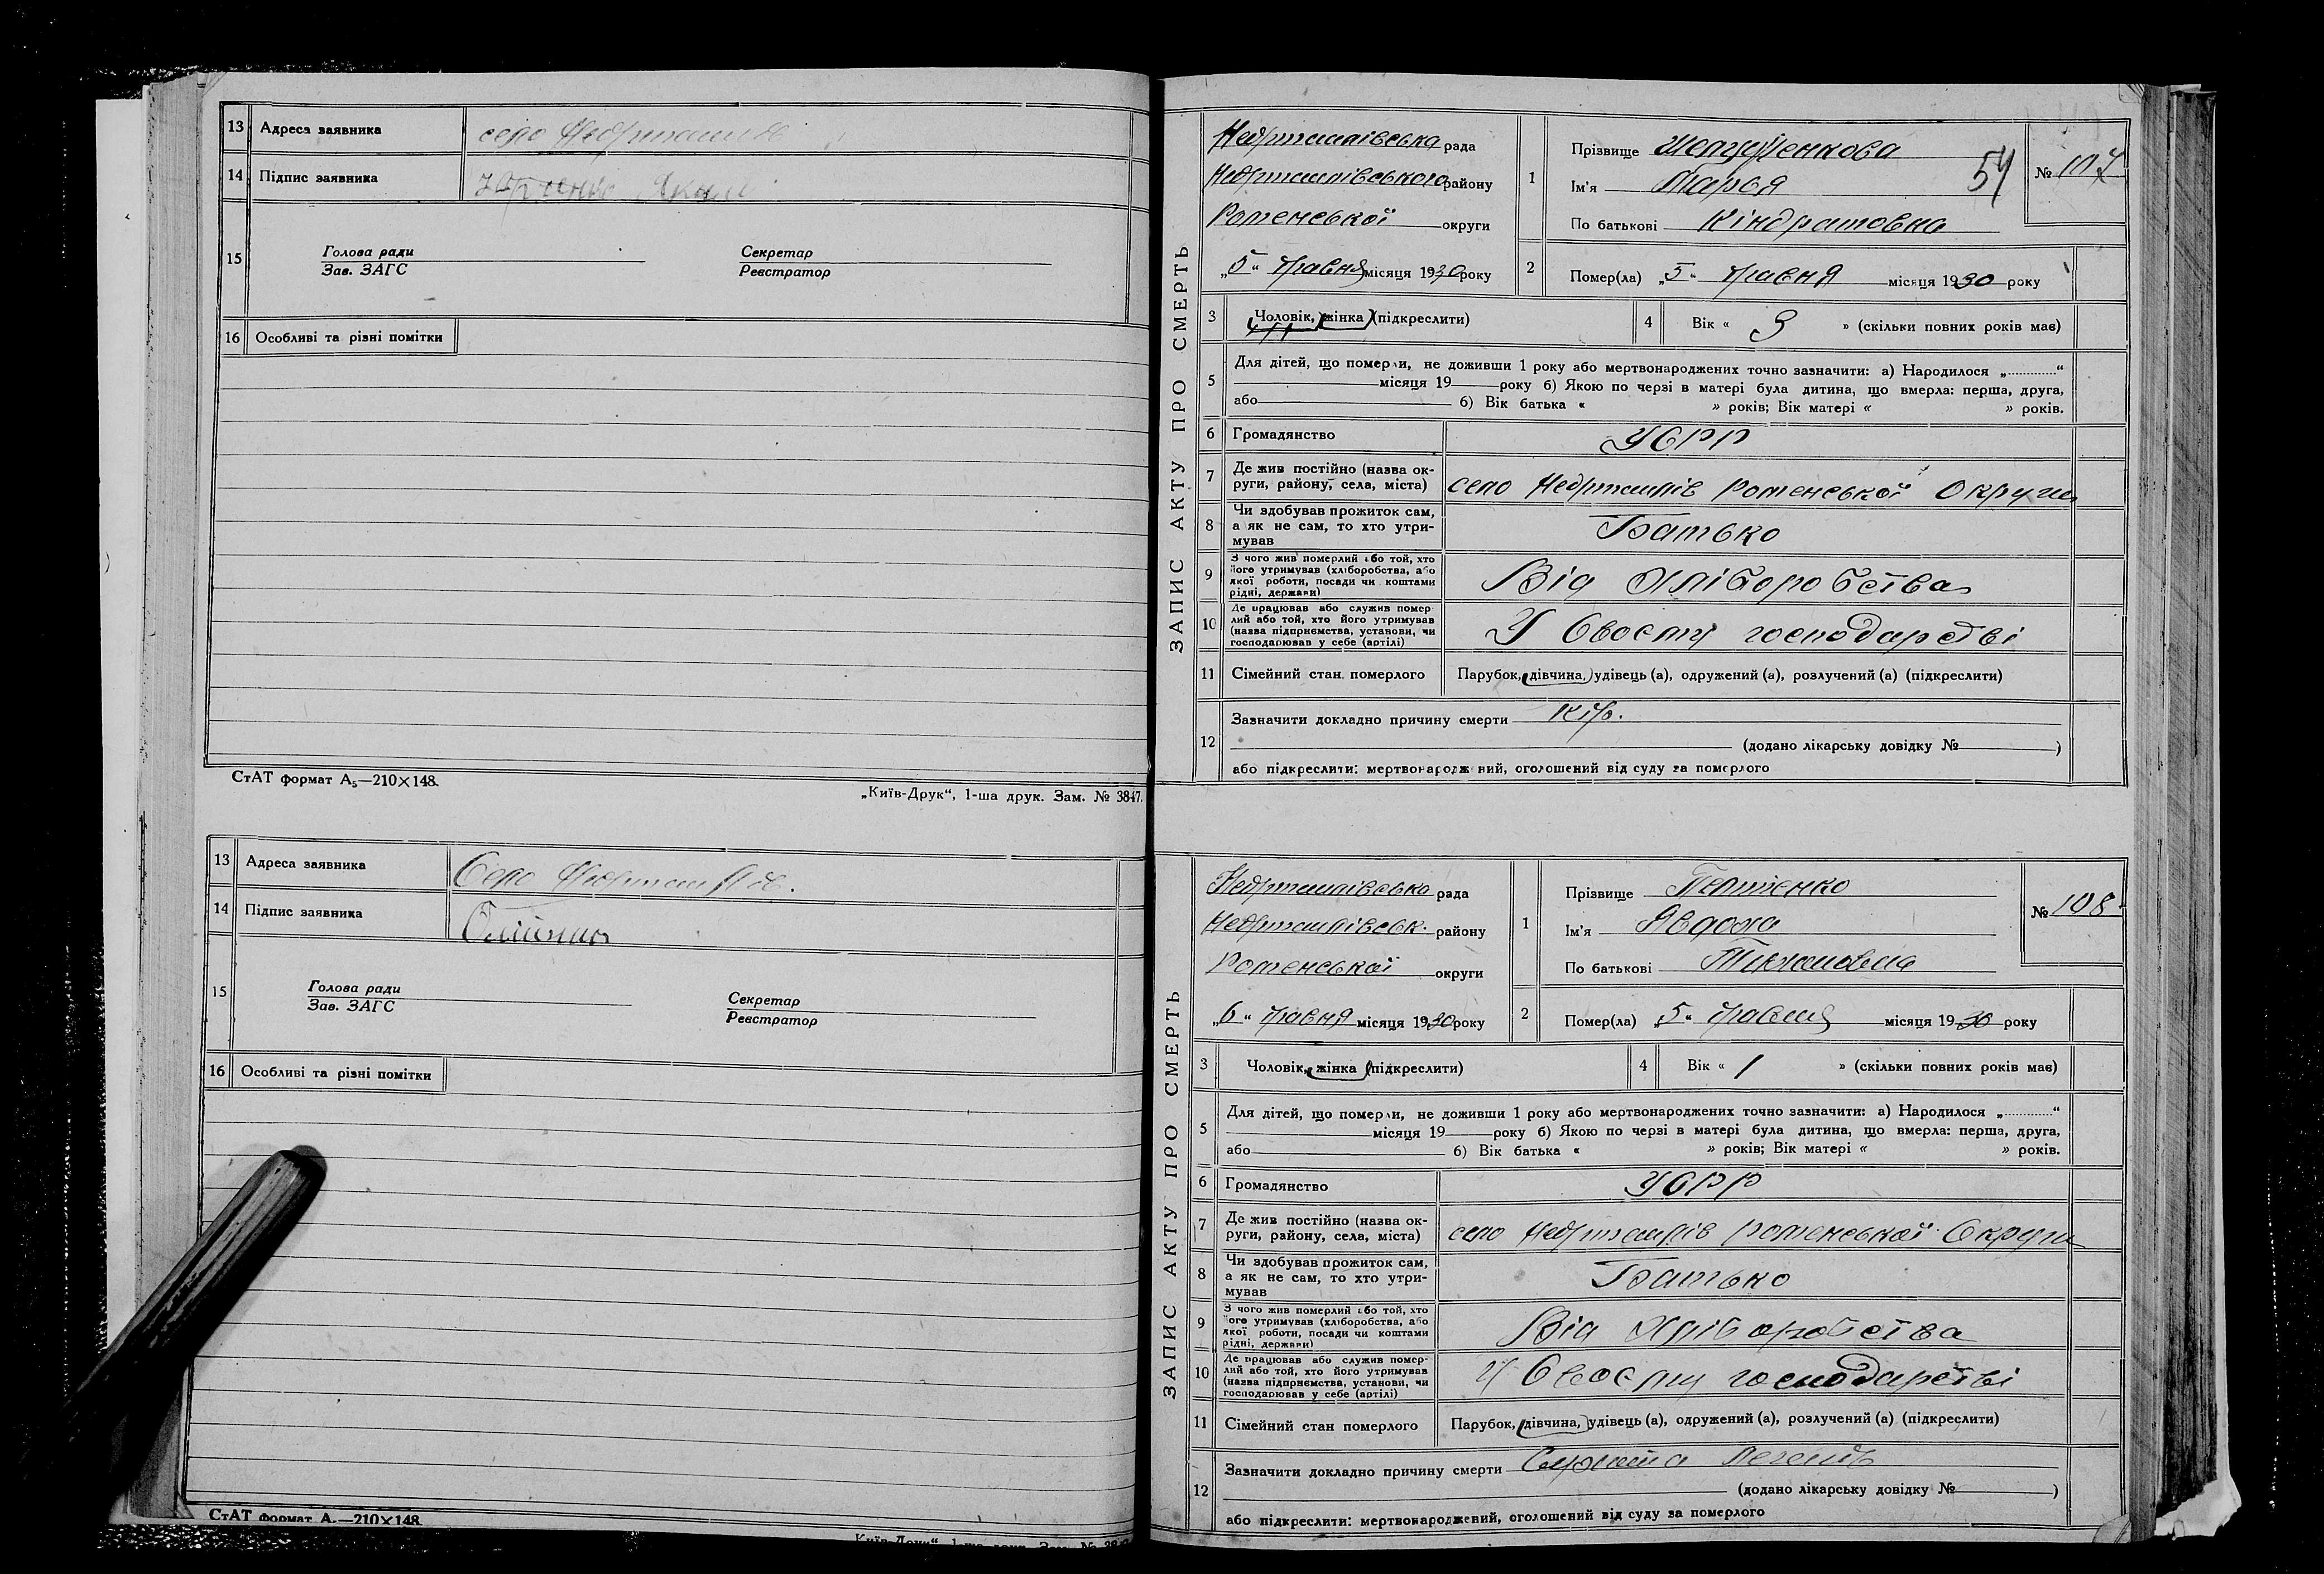 13 Адреса заявника село Недригайлів
14 Підпис заявника
15 Голова ради Секретар
Зав. ЗАГС Реєстратор
16 Особливі та різні помітки
СтАТ формат А₅—210×148.
„Київ-Друк“, 1-ша друк. Зам. № 3847.
13 Адреса заявника Село Недригайлів.
14 Підпис заявника
15 Голова ради Секретар
Зав. ЗАГС Реєстратор
16 Особливі та різні помітки
СтАТ формат А₅—210×148.
ЗАПИС АКТУ ПРО СМЕРТЬ
Недригайлівська рада
Недригайлівського району
Роменської округи
„5“ травня місяця 1930 року
1 Прізвище
Ім'я Марья
По батькові Кіндратовна
54
№ 107
2 Помер(ла) „5“ травня місяця 1930 року
3 Чоловік, жінка (підкреслити)
4 Вік « 3 » (скільки повних років має)
5 Для дітей, що померли, не доживши 1 року або мертвонароджених точно зазначити: а) Народилося „............“
місяця 19 року б) Якою по черзі в матері була дитина, що вмерла: перша, друга,
або б) Вік батька « » років; Вік матері « » років.
6 Громадянство УСРР
7 Де жив постійно (назва ок-
руги, району, села, міста) село Недригайлів Роменської Округи
8 Чи здобував прожиток сам,
а як не сам, то хто утри-
мував Батько
9 З чого жив померлий або той, хто
його утримував (хліборобства, або
якої роботи, посади чи коштами
рідні, держави) Від Хліборобства
10 Де працював або служив помер-
лий або той, хто його утримував
(назва підприємства, установи, чи
господарював у себе (артілі) У Своєму господарстві
11 Сімейний стан померлого Парубок, дівчина, удівець (а), одружений (а), розлучений (а) (підкреслити)
12 Зазначити докладно причину смерти Кір.
(додано лікарську довідку № )
або підкреслити: мертвонароджений, оголошений від суду за померлого
ЗАПИС АКТУ ПРО СМЕРТЬ
Недригайлівська рада
Недригайлівськ. району
Роменської округи
„6“ травня місяця 1930 року
1 Прізвище
Ім'я Явдоха
По батькові
№ 108
2 Помер(ла) „5“ травня місяця 1930 року
3 Чоловік, жінка (підкреслити)
4 Вік « 1 » (скільки повних років має)
5 Для дітей, що померли, не доживши 1 року або мертвонароджених точно зазначити: а) Народилося „............“
місяця 19 року б) Якою по черзі в матері була дитина, що вмерла: перша, друга,
або б) Вік батька « » років; Вік матері « » років.
6 Громадянство УСРР
7 Де жив постійно (назва ок-
руги, району, села, міста) село Недригайлів Роменської Округи
8 Чи здобував прожиток сам,
а як не сам, то хто утри-
мував Батько
9 З чого жив померлий або той, хто
його утримував (хліборобства, або
якої роботи, посади чи коштами
рідні, держави) Від Хліборобства
10 Де працював або служив помер-
лий або той, хто його утримував
(назва підприємства, установи, чи
господарював у себе (артілі) У Своєму господарстві
11 Сімейний стан померлого Парубок, дівчина, удівець (а), одружений (а), розлучений (а) (підкреслити)
12 Зазначити докладно причину смерти Сухота Легень
(додано лікарську довідку № )
або підкреслити: мертвонароджений, оголошений від суду за померлого